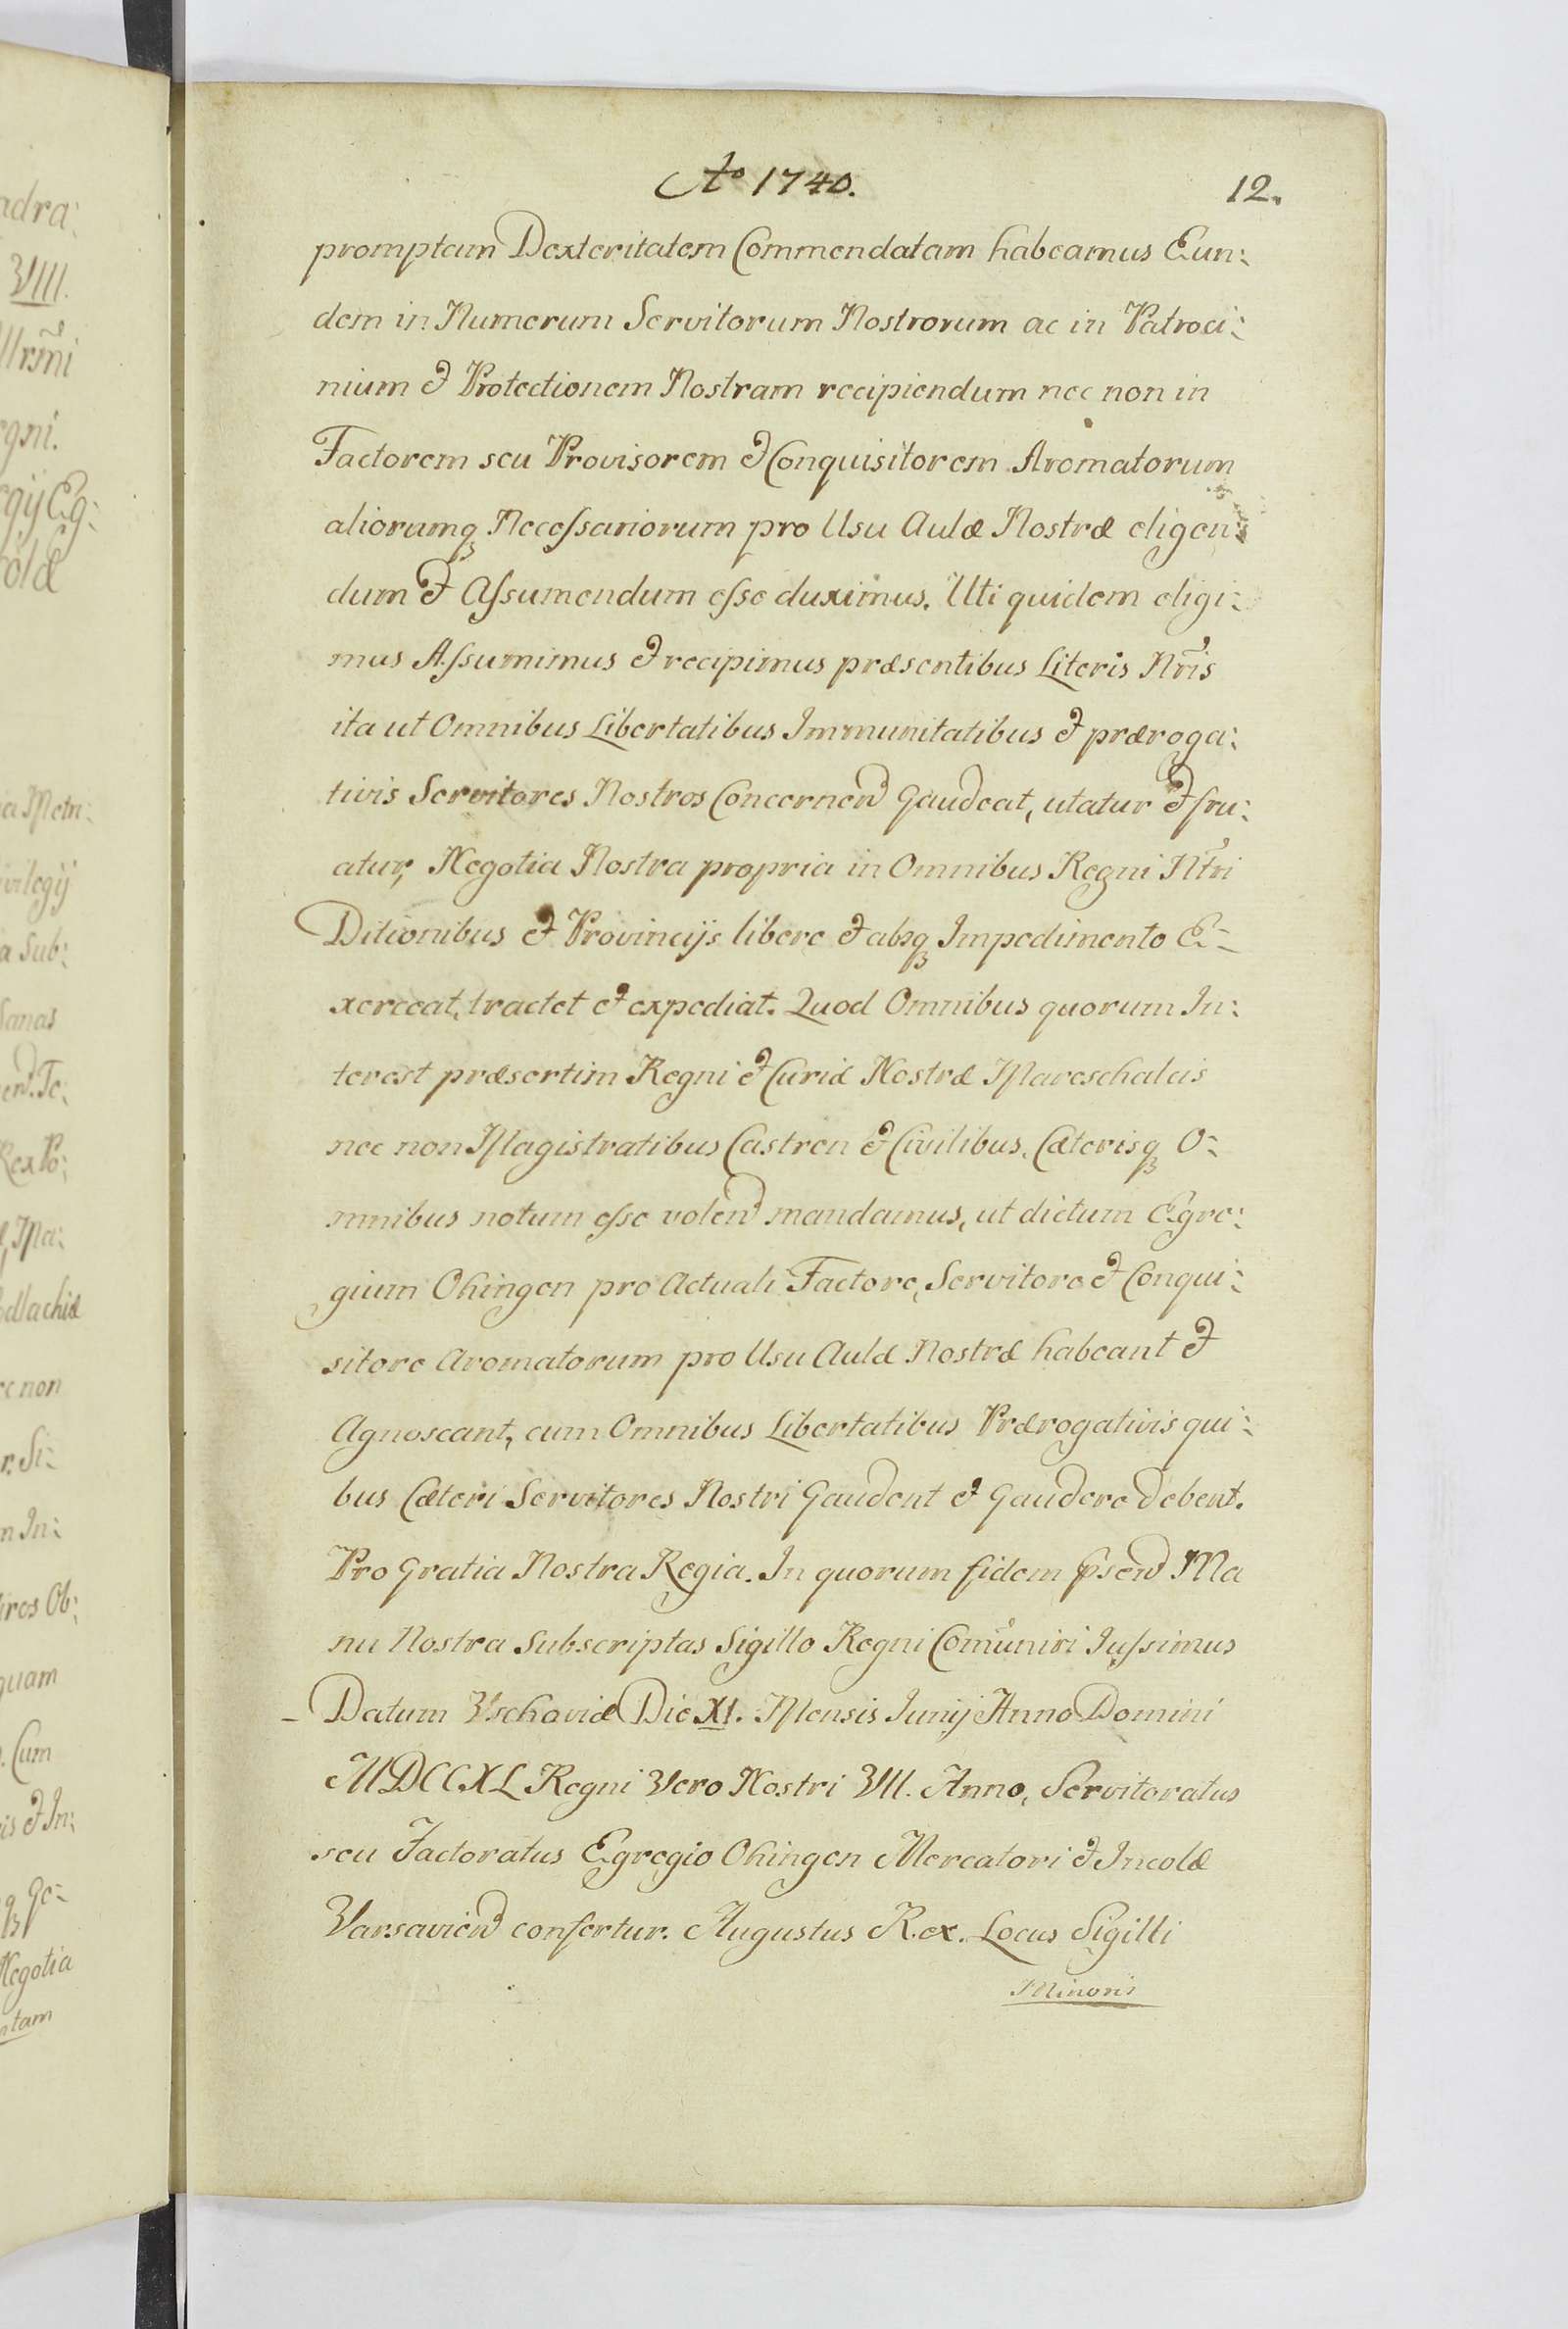 Ao 1740.
12.
promptam Dexteritatem Commendatam habeamus Eun:
dem in Numerum Servitorum Nostrorum ac in Patroci:
nium & Protectionem Nostram recipiendum nec non in
Factorem seu Provisorem & Conquisitorem Aromatorum
aliorumq Necessariorum pro Usu Aulæ Nostræ eligen:
dum & Assumendum esse duximus. Uti quidem eligi:
mus Assumimus & recipimus præsentibus Literis Nris
ita ut Omnibus Libertatibus Immunitatibus & præroga:
tivis Servitores Nostros Concernen Gaudeat, utatur & fru:
atur, Negotia Nostra propria in Omnibus Regni Ntri
Ditionibus & Provincijs libere & absq Impedimento E:
xerceat, tractet & expediat. Quod Omnibus quorum In:
terest præsertim Regni & Curiæ Nostræ Mareschalcis
nec non Magistratibus Castren & Civilibus, Cæterisq O:
mnibus notum esse volen mandamus, ut dictum Egre:
gium Ohingen pro Actuali Factore, Servitore & Conqui:
sitore Aromatorum pro Usu Aulæ Nostræ habeant &
Agnoscant, cum Omnibus Libertatibus Prærogativis qui:
bus Cæteri Servitores Nostri Gaudent & Gaudere debent.
Pro Gratia Nostra Regia. In quorum fidem psen Ma
nu Nostra Subscriptas Sigillo Regni Comuniri Jussimus
Datum Vschoviæ Die XI. Mensis Junij Anno Domini
MDCCXL Regni Vero Nostri VII. Anno, Servitoratus
seu Factoratus Egregio Ohingen Mercatori & Incolæ
Varsavien confertur. Augustus Rex. Locus Sigilli
Minoris